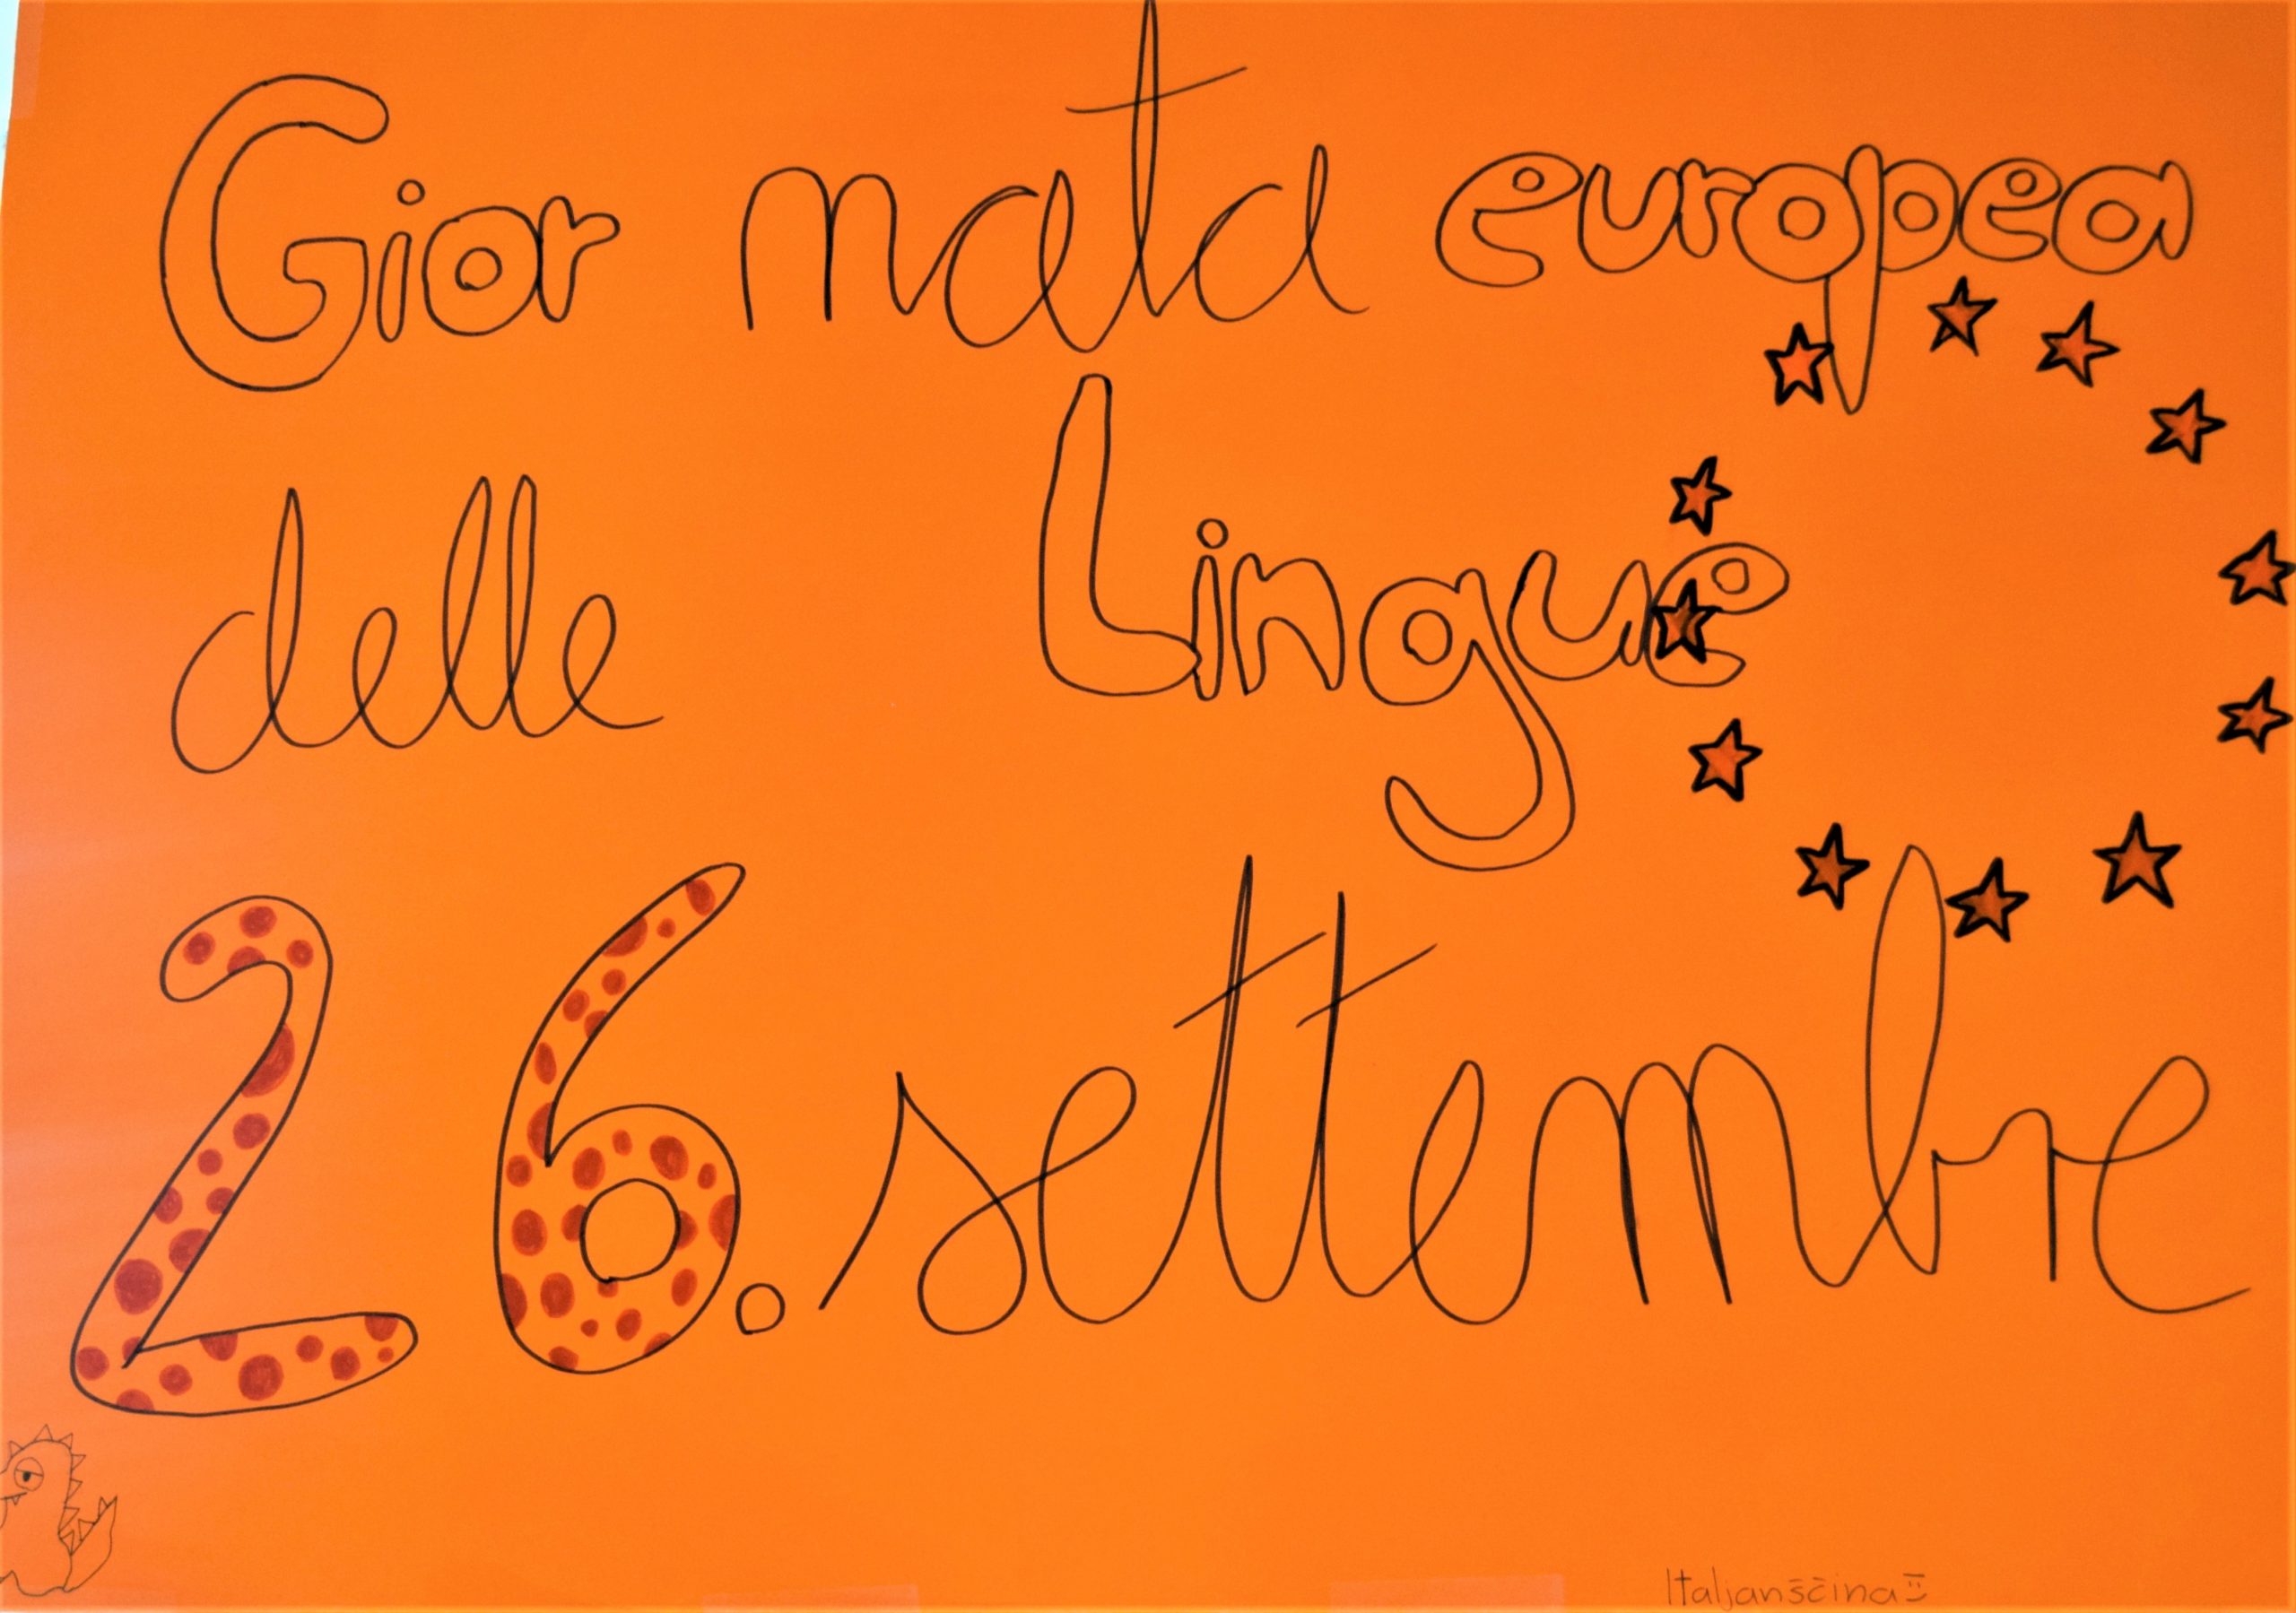 Gior nata europea
delle Lingue
26. settembre
Italjanščina